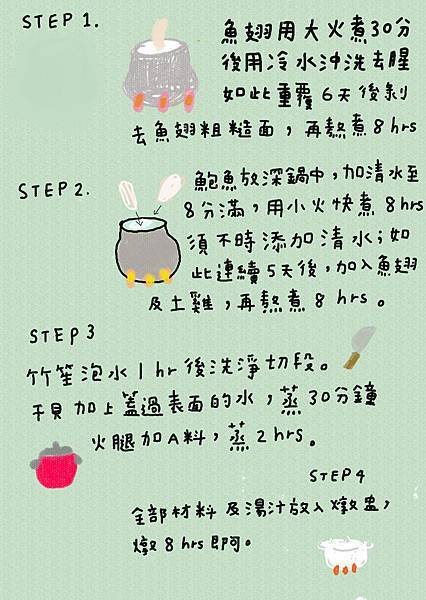 STEP 1.
魚翅用大火煮30分
後用冷水沖洗去腥
如此重覆6天後剝
去魚翅粗糙面，再熬煮8hrs
STEP 2.
鮑魚放深鍋中,加清水至
8分滿,用小火快煮8hrs
須不時添加清水;如
此連續5天後,加入魚翅
及土雞,再熬煮8hrs。
STEP 3
竹笙泡水1hr後洗淨切段。
干貝加上蓋過表面的水,蒸30分鐘
火腿加A料,蒸2hrs。
STEP4
全部材料及湯汁放入燉盅,
燉8hrs即可。